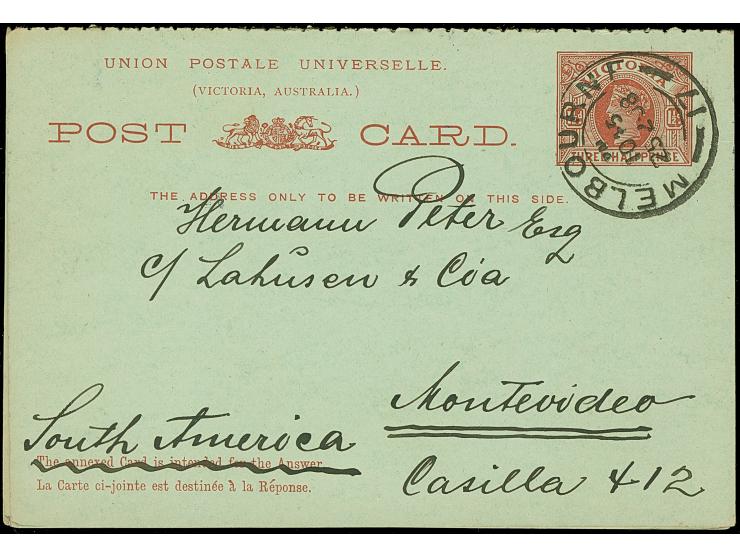 UNION POSTALE UNIVERSELLE.
(VICTORIA, AUSTRALIA.)
POST CARD.
VICTORIA
THREE HALF PENCE
MELBOURNE
THE ADDRESS ONLY TO BE WRITTEN ON THIS SIDE.
Hermann Peter Esq
c/ Lahusen & Cía
Montevideo
South America
The annexed Card is intended for the Answer.
La Carte ci-jointe est destinée à la Réponse.
Casilla 412